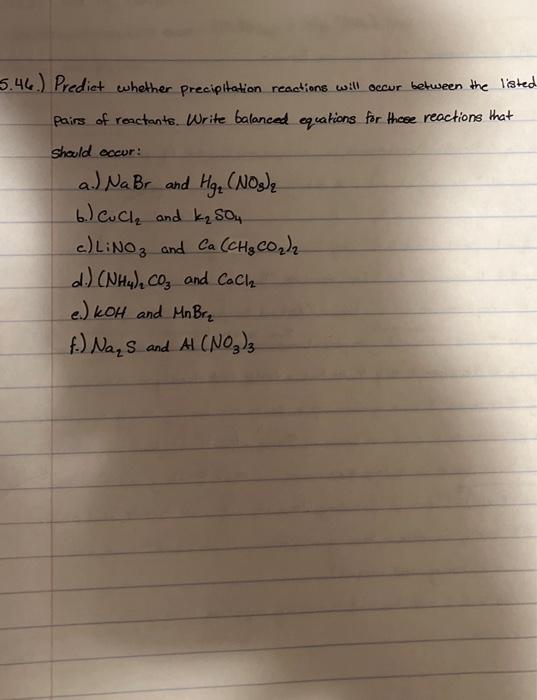 5.46.) Predict whether precipitation reactions will occur between the listed
pairs of reactants. Write balanced equations for those reactions that
should occur:
a.) NaBr and Hg₂(NO₃)₂
b.) CuCl₂ and K₂SO₄
c.) LiNO₃ and Ca(CH₃CO₂)₂
d.) (NH₄)₂CO₃ and CaCl₂
e.) KOH and MnBr₂
f.) Na₂S and Al(NO₃)₃